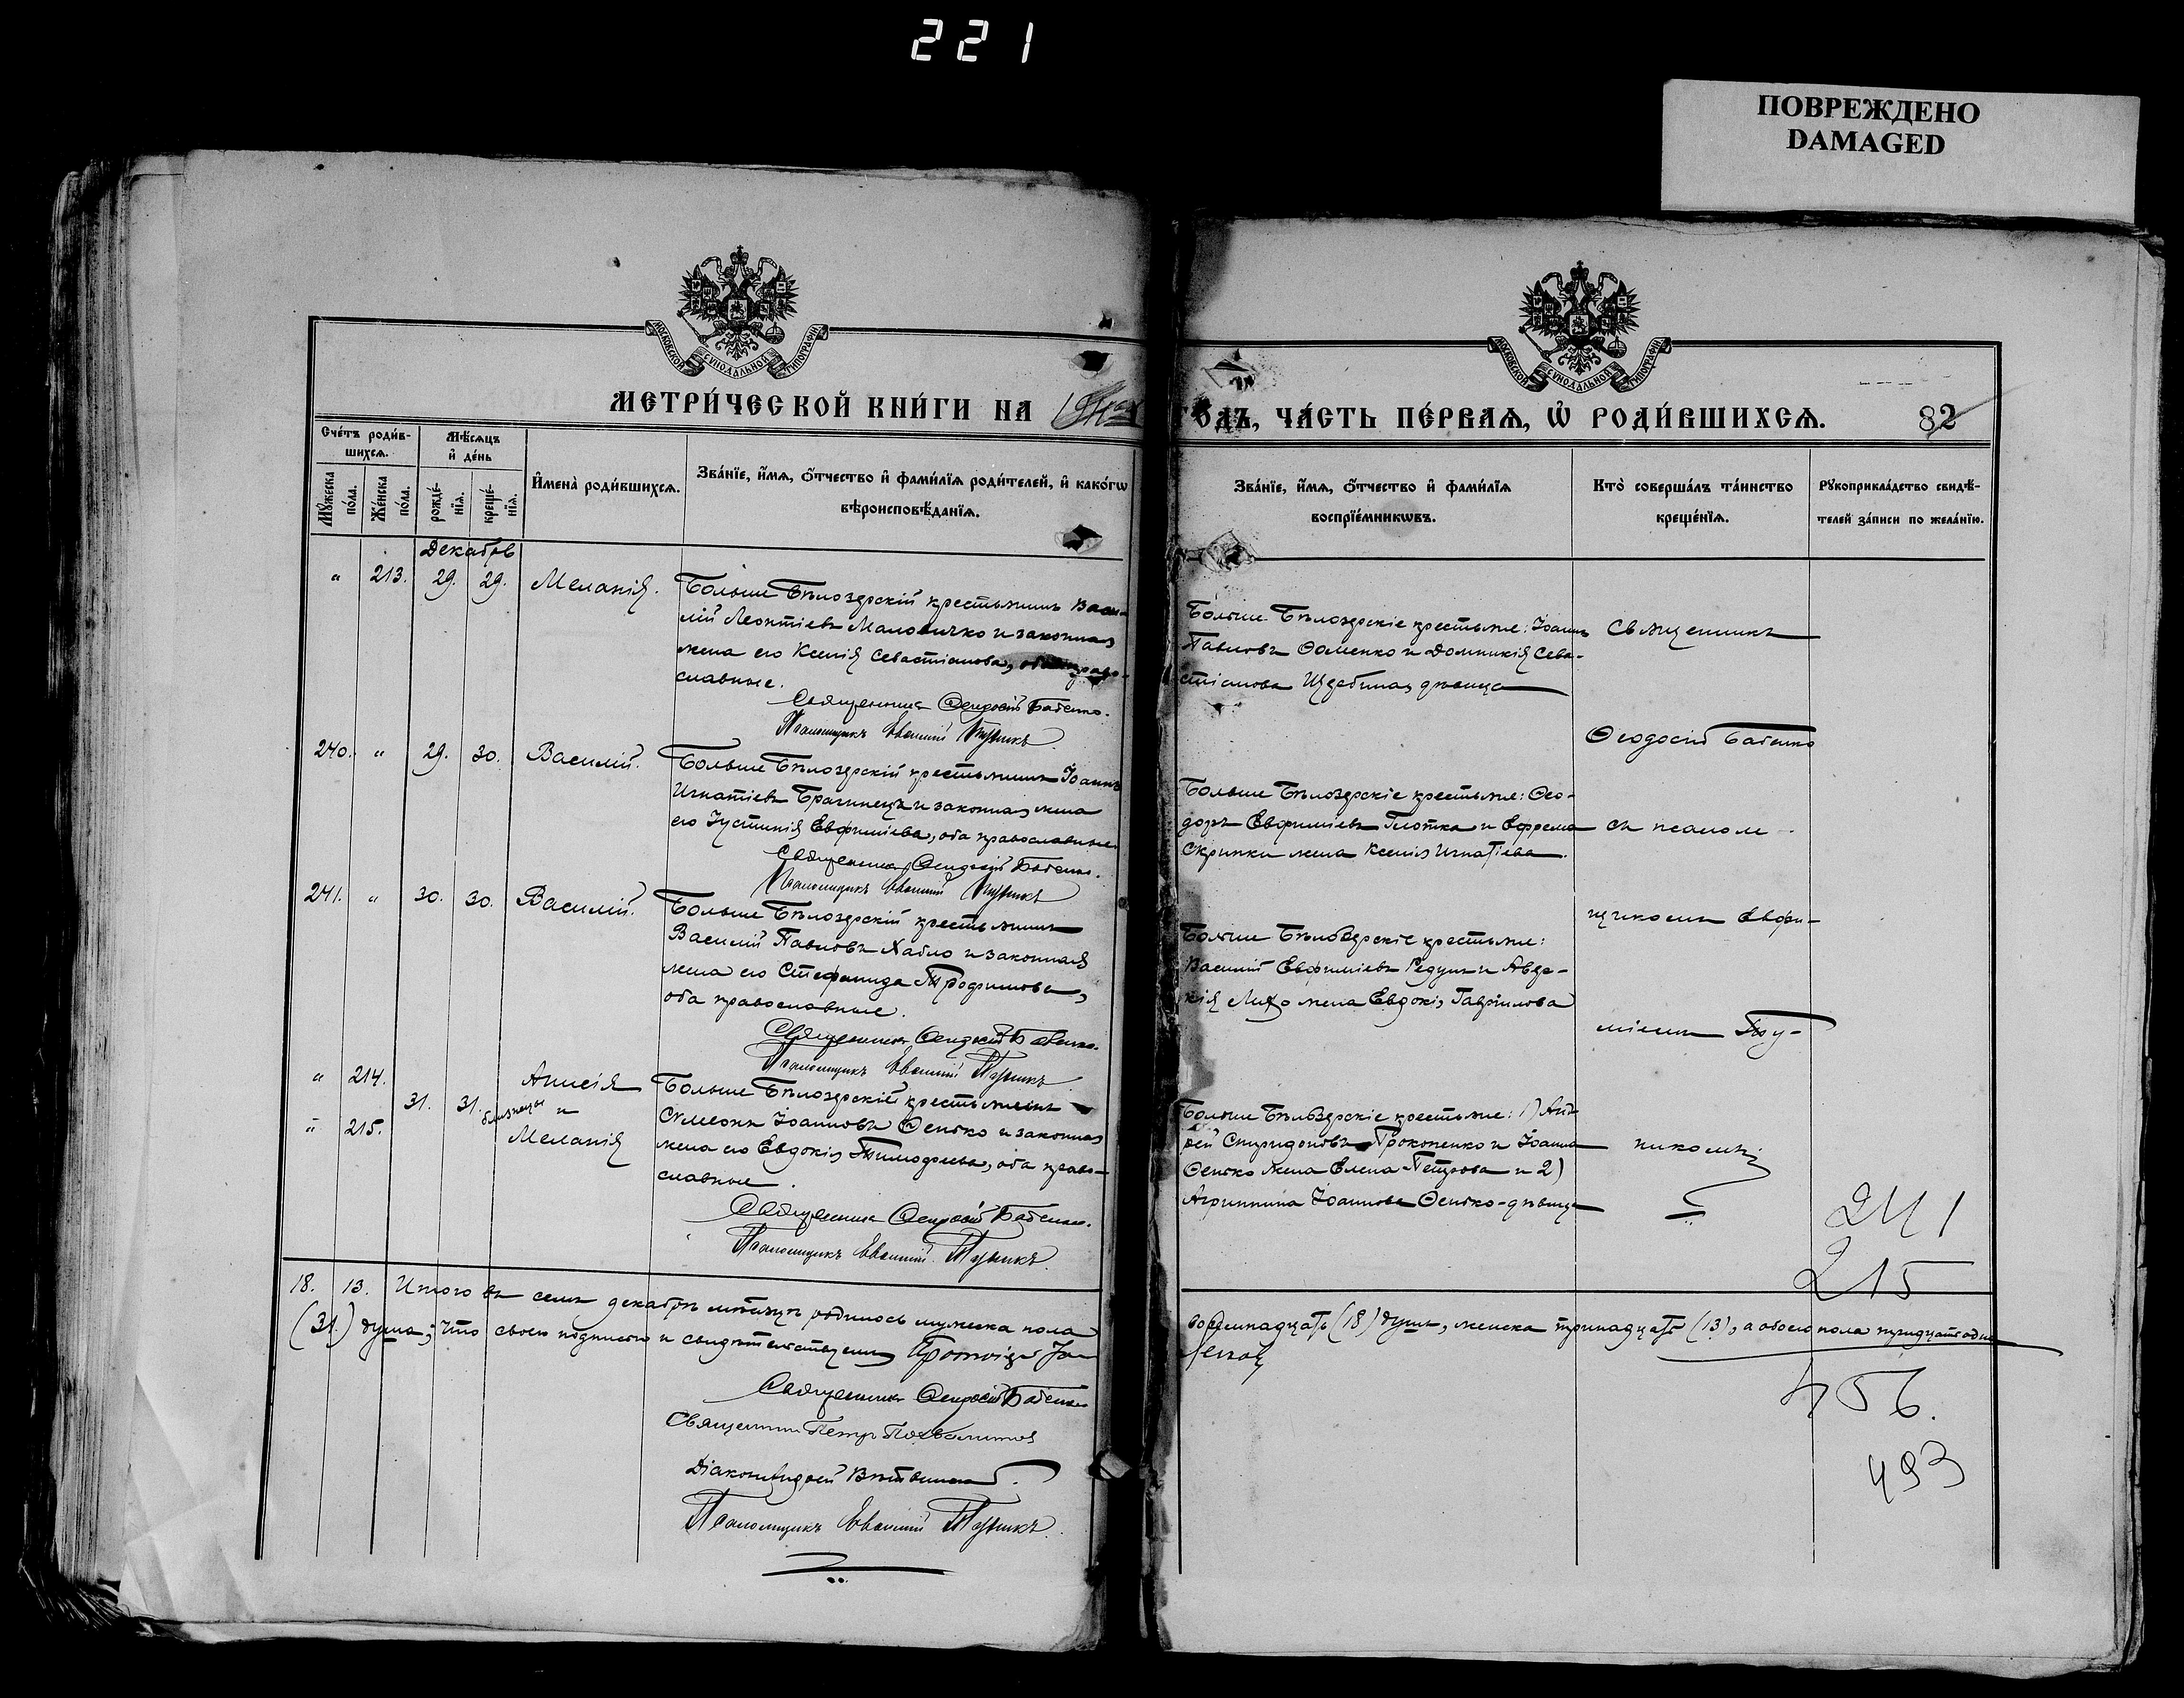 221
ПОВРЕЖДЕНО
DAMAGED
МОСКОВСКОЙ СѴНОДАЛЬНОЙ ТИПОГРАФІИ
МОСКОВСКОЙ СѴНОДАЛЬНОЙ ТИПОГРАФІИ
МЕТРИ́ЧЕСКОЙ КНИ́ГИ НА
ГОДЪ, ЧА́СТЬ ПЕ́РВАЯ, Ѡ҆ РОДИ́ВШИХСЯ.
82
Сче́тъ роди́в-
шихся.
Мѣ́сяцъ
и҆ де́нь
И҆мена̀ роди́вшихся.
Зва́нїе, и҆́мя, ѻ҆́тчество и҆ фами́лїя роди́телей, и҆ како́гѡ
вѣроисповѣ́данїя.
Мꙋ́жеска
по́ла.
Же́нска
по́ла.
рожде́-
нїя.
креще́-
нїя.
Зва́нїе, и҆́мя, ѻ҆́тчество и҆ фами́лїя
воспрїе́мникѡвъ.
Кто̀ соверша́лъ та́инство
креще́нїя.
Рꙋкоприкла́дство свидѣ́-
телей за́писи по жела́нїю.
Декабрь
" 213. 29. 29. Меланія.
Больше Бѣлозерскій крестьянинъ Васи-
лій Леонтіевъ Маловичко и законная
жена его Ксенія Севастіанова, оба право-
славные.
Священникъ Ѳеодосій Бабенко.
Псаломщикъ Евѳимій
Больше-Бѣлозерскіе крестьяне: Іоаннъ
Павловъ Ѳоменко и Домникія Сева-
стіанова Щербина, дѣвица
Священникъ
Ѳеодосій Бабенко
240. " 29. 30. Василій.
Больше Бѣлозерскій крестьянинъ Іоаннъ
Игнатіевъ Брагинецъ и законная жена
его Іустинія Евфиміева, оба православные.
Священникъ Ѳеодосій Бабенко.
Псаломщикъ Евѳимій
Больше Бѣлозерскіе крестьяне: Ѳео-
доръ Евфиміевъ Глотка и Ефрема
Скрипки жена Ксенія Игнатіева.
съ псалом-
241. " 30. 30. Василій.
Больше Бѣлозерскій крестьянинъ
Василій Павловъ Хабло и законная
жена его Стефанида Трофимова,
оба православные.
Священникъ Ѳеодосій Бабенко.
Псаломщикъ Евѳимій
щикомъ Евфи-
Больше Бѣлозерскіе крестьяне:
Василій Евфиміевъ Редунъ и Авер-
кія Лихо жена Евдокія Гаврілова
міемъ
" 214.
" 215.
31. 31.
близнецы
Анисія
и
Меланія
Больше Бѣлозерскій крестьянинъ
Сѵмеонъ Іоанновъ Ѳенько и законная
жена его Евдокія Тимофеева, оба право-
славные.
Священникъ Ѳеодосій Бабенко.
Псаломщикъ Евѳимій
Больше Бѣлозерскіе крестьяне: 1) Анд-
рей Спиридоновъ Прокопенко и Іоанна
Ѳенько жена Елена Петрова и 2)
Агриппина Іоаннова Ѳенько-дѣвица
никомъ
241
215
18. 13. Итого въ семъ декабрѣ мѣсяцѣ родилось мужеска пола
восемнадцать (18) душъ, женска тринадцать (13), а обоего пола тридцать одна
(31.) душа; что своею подписью и свидѣтельствуемъ Протоіерей
Священникъ Ѳеодосій Бабенко
Священникъ Петръ
Діаконъ Андрей
Псаломщикъ Евѳимій
456.
493